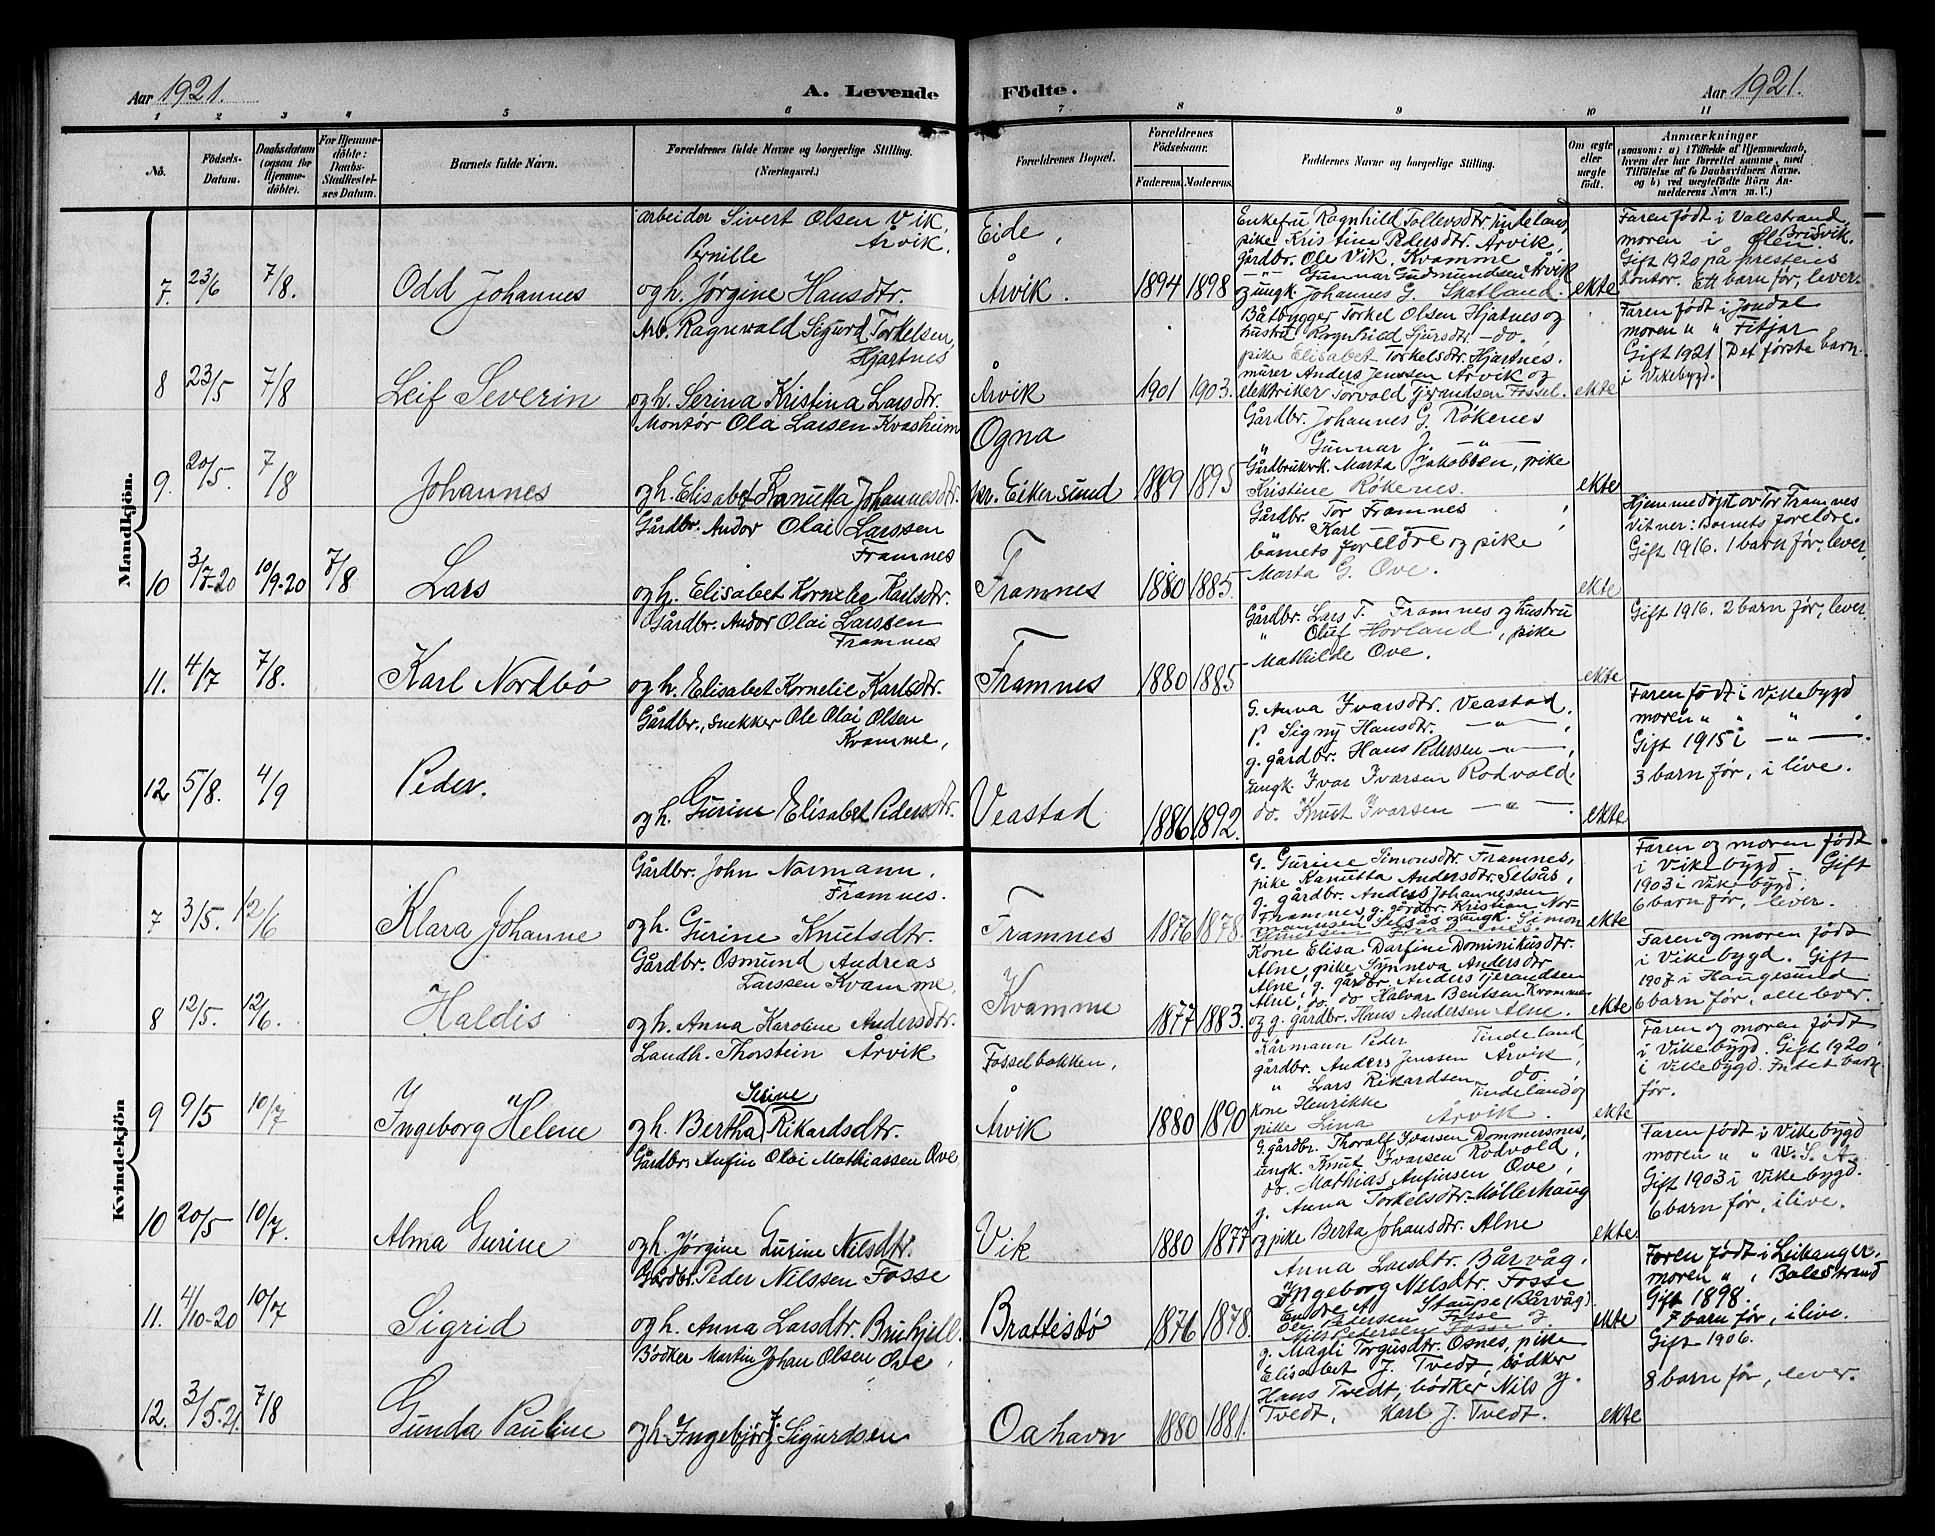 Aar 1921. A. Levende Födte. Aar 1921.
1 2 3 4 5 6 7 8 9 10 11
No.
Födsels-Datum.
Daabsdatum (ogsaa for Hjemmedöbte).
For Hjemmedöbte: Daabs-Stadfæstelses Datum.
Barnets fulde Navn.
Forældrenes fulde Navne og borgerlige Stilling. (Næringsvei.)
Forældrenes Bopæl.
Forældrenes Födselsaar.
Faderens. Moderens.
Faddernes Navne og borgerlige Stilling.
Om ægte eller uægte födt.
Anmærkninger
(saasom: a) i Tilfælde af Hjemmedaab, hvem der har forrettet samme, med Tilföielse af to Daabsvidners Navne. og b) ved uægtefödte Börn Anmelderens Navn m. V.)
Mandkjön.
7. 23/6 7/8. Odd Johannes
arbeider Sivert Olsen Vik,
Årvik.
Pernille
og h. Jørgine Hansdtr.
Eide,
Årvik. 1894 1898
Enkefru Ragnhild Tollevsdtr. Tindeland,
pike Kristine Pedersdtr. Årvik,
gårdbr. Ole Vik, Kvamme
-"- Gunnar Gudmundsen Årvik
og ungk. Johannes G. Skatland. ekte
Faren født i Valestrand,
moren i Ølen. Brusvik.
Gift 1920 på prestens
kontor. Ett barn før, lever.
8 23/5 7/8 Leif Severin
Arb. Ragnvald Sigurd Torkelsen,
Hjartnes
og h. Serina Kristina Larsdtr.
Årvik 1901 1903.
Båtbygger Torkel Olsen Hjatnes og
hustru Ragnhild Sjursdtr. -do.
pike Elisabet Torkelsdtr. Hjartnes.
murer Anders Jenssen Årvik og
elektriker Torvald Tjerandsen Fossel. ekte
Faren født i Jondal
moren " " Fitjar
Gift 1921 Det første barn.
i Vikebygd.
9. 20/5. 7/8 Johannes
Montør Ola Larsen Kvasheim
og h. Elisabet Kanutta Johannesdtr.
Ogna
pr. Eikersund 1889 1895
Gårdbr. Johannes G. Røkenes
" Gunnar J. -"-
Gårdbrukerk. Marta Jakobsen, pike
Kristine Røkenes. ekte
10 3/7-20 10/9-20 7/8 Lars
Gårdbr. Andor Olai Larssen
Framnes
og h. Elisabet Kornelie Karlsdtr.
Framnes 1880 1885.
Gårdbr. Tor Framnes
" Karl
barnets foreldre og pike
Marta G. Ove. ekte
Hjemmedøpt av Tor Framnes
Vitner: Barnets foreldre.
Gift 1916. 1 barn før, lever.
11. 4/7 7/8. Karl Nordbø
Gårdbr. Andor Olai Larssen
Framnes
og h. Elisabet Kornelie Karlsdtr.
Framnes 1880 1885
Gårdbr. Lars T. Framnes og hustru
" Oluf Hovland, pike
Mathilde Ove. ekte
Gift 1916. 2 barn før, lever.
12 5/8. 4/9 Peder.
Gårdbr., snekker Ole Olai Olsen
Kvamme,
og h. Gurine Elisabet Pedersdtr.
Veastad 1886 1892.
G. Anna Ivarsdtr. Veastad.
p. Signy Hansdtr. -"-,
g. gårdbr. Hans Pedersen -"-,
ungk. Ivar Ivarsen Rodvold.
do. Knut Ivarsen -"-. ekte
Faren født i Vikebygd
moren " " " .
Gift 1915 i -"-.
3 barn før, i live.
Kvindekjön
7 3/5. 12/6 Klara Johanne
Gårdbr. John Normann,
Framnes.
og h. Gurine Knutsdtr.
Framnes 1876 1878.
G. Gurine Simonsdtr. Framnes,
pike Kanutta Andersdtr. Selsås,
g. gårdbr. Anders Johannessen
Framnes, g. gårdbr. Kristian Nor-
mannsen Selsås og ungk. Simon
Knutsen Framnes. ekte
Faren og moren født
i Vikebygd. Gift
1903 i Vikebygd.
6 barn før, lever.
8 12/5. 12/6. Haldis
Gårdbr. Osmund Andreas
Larssen Kvamme,
og h. Anna Karoline Andersdtr.
Kvamme 1877 1883.
Kone Elisa Dorfine Dominikusdtr.
Alne, pike Synneva Andersdtr
Alne, g. gårdbr. Anders Tjerandsen
Alne, do. do Halvar Bentsen Kvamme
og g. gårdbr. Hans Andersen Alne. ekte
Faren og moren født
i Vikebygd. Gift
1907 i Haugesund
6 barn før, alle lever.
9 9/5 10/7 Ingeborg Helene
Landh. Thorstein Årvik
Serine
og h. Bertha Rikardsdtr.
Fosselbakken,
Årvik 1880 1890
Kårmann Peder Tindeland,
gårdbr. Anders Jenssen Årvik,
" Lars Rikardsen do,
kone Henrikke Tindeland og
pike Lina Årvik. ekte
Faren og moren født
i Vikebygd. Gift 1920
i Vikebygd. Intet barn
før.
10 20/5 10/7. Alma Gurine
Gårdbr. Anfin Olai Mathiassen Ove,
og h. Jørgine Gurine Nilsdtr.
Vik 1880 1877
G. gårdbr. Thoralf Ivarsen Dommersnes,
ungk. Knut Ivarsen Rodvold,
do. Mathias Anfinsen Ove,
g. Anna Torkelsdtr. Møllerhaug
og pike Berta Johansdtr. Alne ekte
Faren født i Vikebygd
moren " " U. S. A.
Gift 1903 i Vikebygd.
6 barn før, i live.
11. 4/10-20 10/7 Sigrid
Gårdbr. Peder Nilssen Fosse
og h. Anna Larsdtr. Bruhjell.
Brattestø 1876 1878.
Anna Larsdtr. Bårvåg,
Ingeborg Nilsdtr. Fosse
Endre A. Staupe (Bårvåg)
Ole Petersen Fosse og
Nils Petersen Fosse ekte
Faren født i Leikanger,
moren " , Balestrand
Gift 1898.
7 barn før, i live.
12. 3/5.21. 7/8 Gunda Pauline
Bødker Martin Johan Olsen Ove,
og h. Ingebjørg J. Sigurdsen
Oahavn 1880 1881.
g. Magli Torgusdtr. Osnes, pike
Elisabet J. Tvedt, bødker
Hans Tvedt, bødker Nils J.
Tvedt, Karl J. Tvedt. ekte
Gift 1906.
8 barn før, lever.